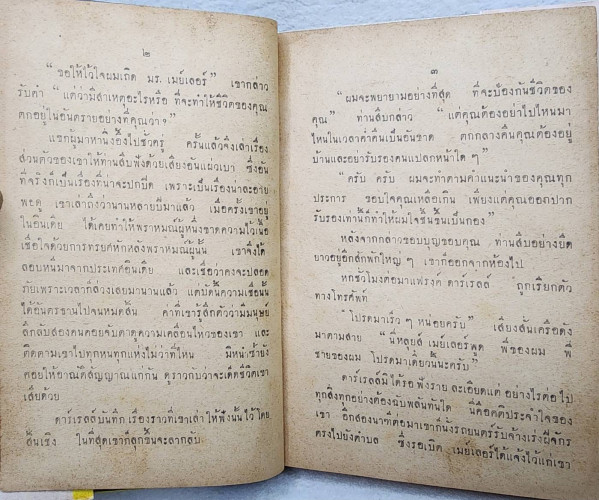 ๒
“ขอให้ไว้ใจผมเถิด มร. เมย์เลอร์” เขากล่าว
รับคำ “แต่ว่ามีสาเหตุอะไรหรือ ที่จะทำให้ชีวิตของคุณ
ตกอยู่ในอันตรายอย่างที่คุณว่า?”
แขกผู้มาหานิ่งอึ้งไปชั่วครู่ ครั้นแล้วจึงเล่าเรื่อง
ส่วนตัวของเขาให้ท่านสืบฟังด้วยเสียงอันแผ่วเบา ซึ่งอัน
ที่จริงก็เป็นเรื่องที่น่าจะปกปิด เพราะเป็นเรื่องน่าละอาย
พอดู เขาเล่าถึงว่านานหลายปีมาแล้ว เมื่อครั้งเขาอยู่
ในอินเดีย ได้เคยทำให้พราหมณ์ผู้หนึ่งขาดความไว้เนื้อ
เชื่อใจด้วยการทรยศหักหลังพราหมณ์ผู้นั้น เขาจึงได้
หลบหนีมาจากประเทศอินเดีย และเชื่อว่าคงจะปลอด
ภัยเพราะเวลาก็ล่วงเลยมานานแล้ว แต่บัดนี้ความเชื่อนั้น
ได้อันตรธานไปจนหมดสิ้น ค่าที่เขารู้สึกตัวว่ามีมนุษย์
ลึกลับสองคนคอยจับตาดูความเคลื่อนไหวของเขา และ
ติดตามเขาไปทุกหนทุกแห่งไม่ว่าที่ไหน มีหนำซ้ำยัง
คอยให้อาณัติสัญญาณแก่กัน ดูราวกับว่าจะเด็ดชีวิตเขา
เสียด้วย
ดาร์เรลล์บันทึกเรื่องราวที่เขาเล่าให้ฟังนั้นไว้โดย
สิ้นเชิง ในที่สุดเขาก็ลุกขึ้นจะลากลับ
๓
“ผมจะพยายามอย่างที่สุด ที่จะป้องกันชีวิตของ
คุณ” ท่านสืบกล่าว “แต่คุณต้องอย่าไปไหนมา
ไหนในเวลาค่ำคืนเป็นอันขาด ตกกลางคืนคุณต้องอยู่
บ้านและอย่ารับรองคนแปลกหน้าใด ๆ”
“ครับ ครับ ผมจะทำตามคำแนะนำของคุณทุก
ประการ ขอบใจคุณเหลือเกิน เพียงแต่คุณออกปาก
รับรองเท่านี้ก็ทำให้ผมใจชื้นขึ้นเป็นกอง”
หลังจากกล่าวขอบบุญขอบคุณ ท่านสืบอย่างยืด
ยาวอยู่อีกสักพักใหญ่ ๆ เขาก็ออกจากห้องไป
หกชั่วโมงต่อมาแฟรงค์ ดาร์เรลล์ ถูกเรียกตัว
ทางโทรศัพท์
“โปรดมาเร็ว ๆ หน่อยครับ” เสียงสั่นเครือดัง
มาตามสาย “นี่หลุยส์ เมย์เลอร์พูด พี่ของผม พี่
ชายของผม โปรดมาเดี๋ยวนี้นะครับ”
ดาร์เรลล์มิได้รอฟังรายละเอียดแต่อย่างไรต่อไป
ทุกสิ่งทุกอย่างต้องฉับพลันทันใด นี่คือคติประจำใจของ
เขา อีกสองนาฑีต่อมาเขาก็นั่งรถยนตร์รับจ้างเร่งฝีจักร
ตรงไปยังตำบล ซึ่งรอเบิต เมย์เลอร์ได้แจ้งไว้แก่เขา